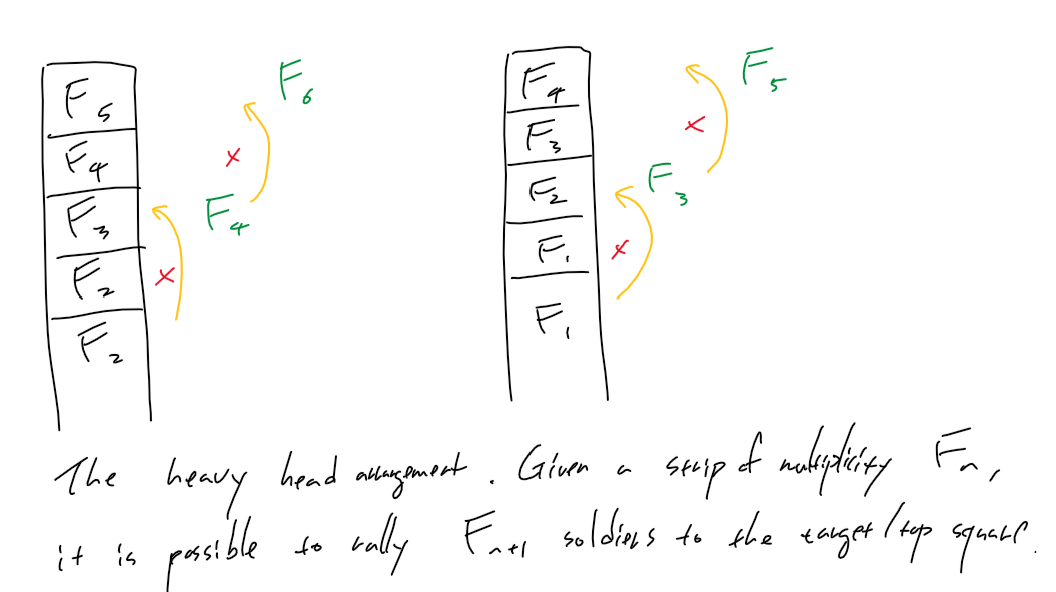 F₆
F₅
F₅
F₄
F₄
F₃
F₃
×
×
F₄
F₃
F₂
F₂
F₁
×
×
F₂
F₁
The heavy head arrangement. Given a strip of multiplicity Fₙ,
it is possible to rally Fₙ₊₁ soldiers to the target/top square.